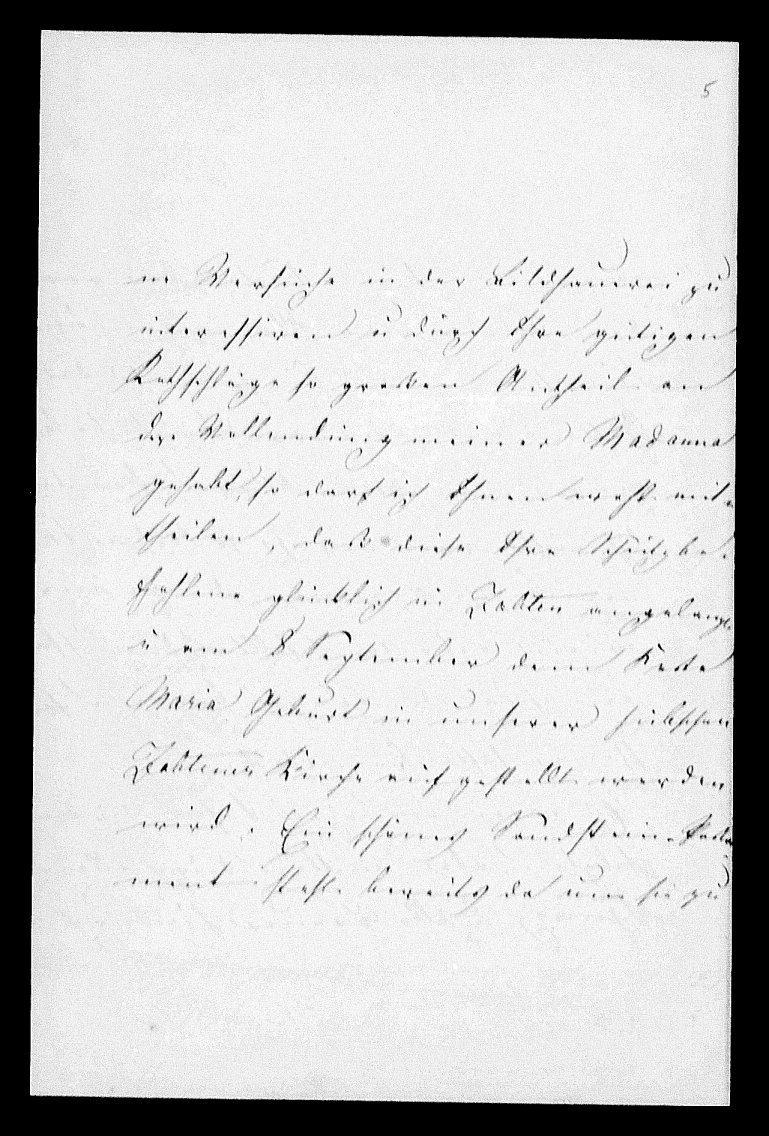 5
ne Versuche in der Bildhauerei zu
interessiren u durch Ihre gütigen
Rathschläge so großen Antheil an
der Vollendung meiner Madonna
gehabt, so darf ich Ihnen wohl mit=
theilen, daß diese Ihre Schutzbe=
fohlene glücklich in Zobten angelangt
u am 8 September dem Feste
Maria Geburt in unserer hübschen
Zobtener Kirche aufgestellt werden
wird. Ein schönes Sandstein Posta
ment steht bereits da um sie zu